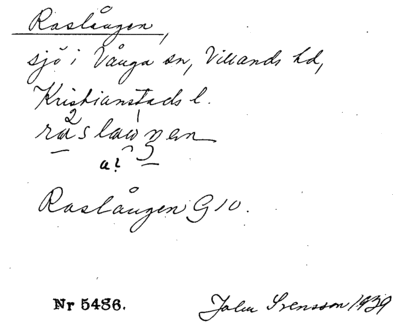 Raslången,
sjö i Vånga sn, Villands hd,
Kristianstads l.
Raslången G 10.
Nr 5436. John Svensson 1939